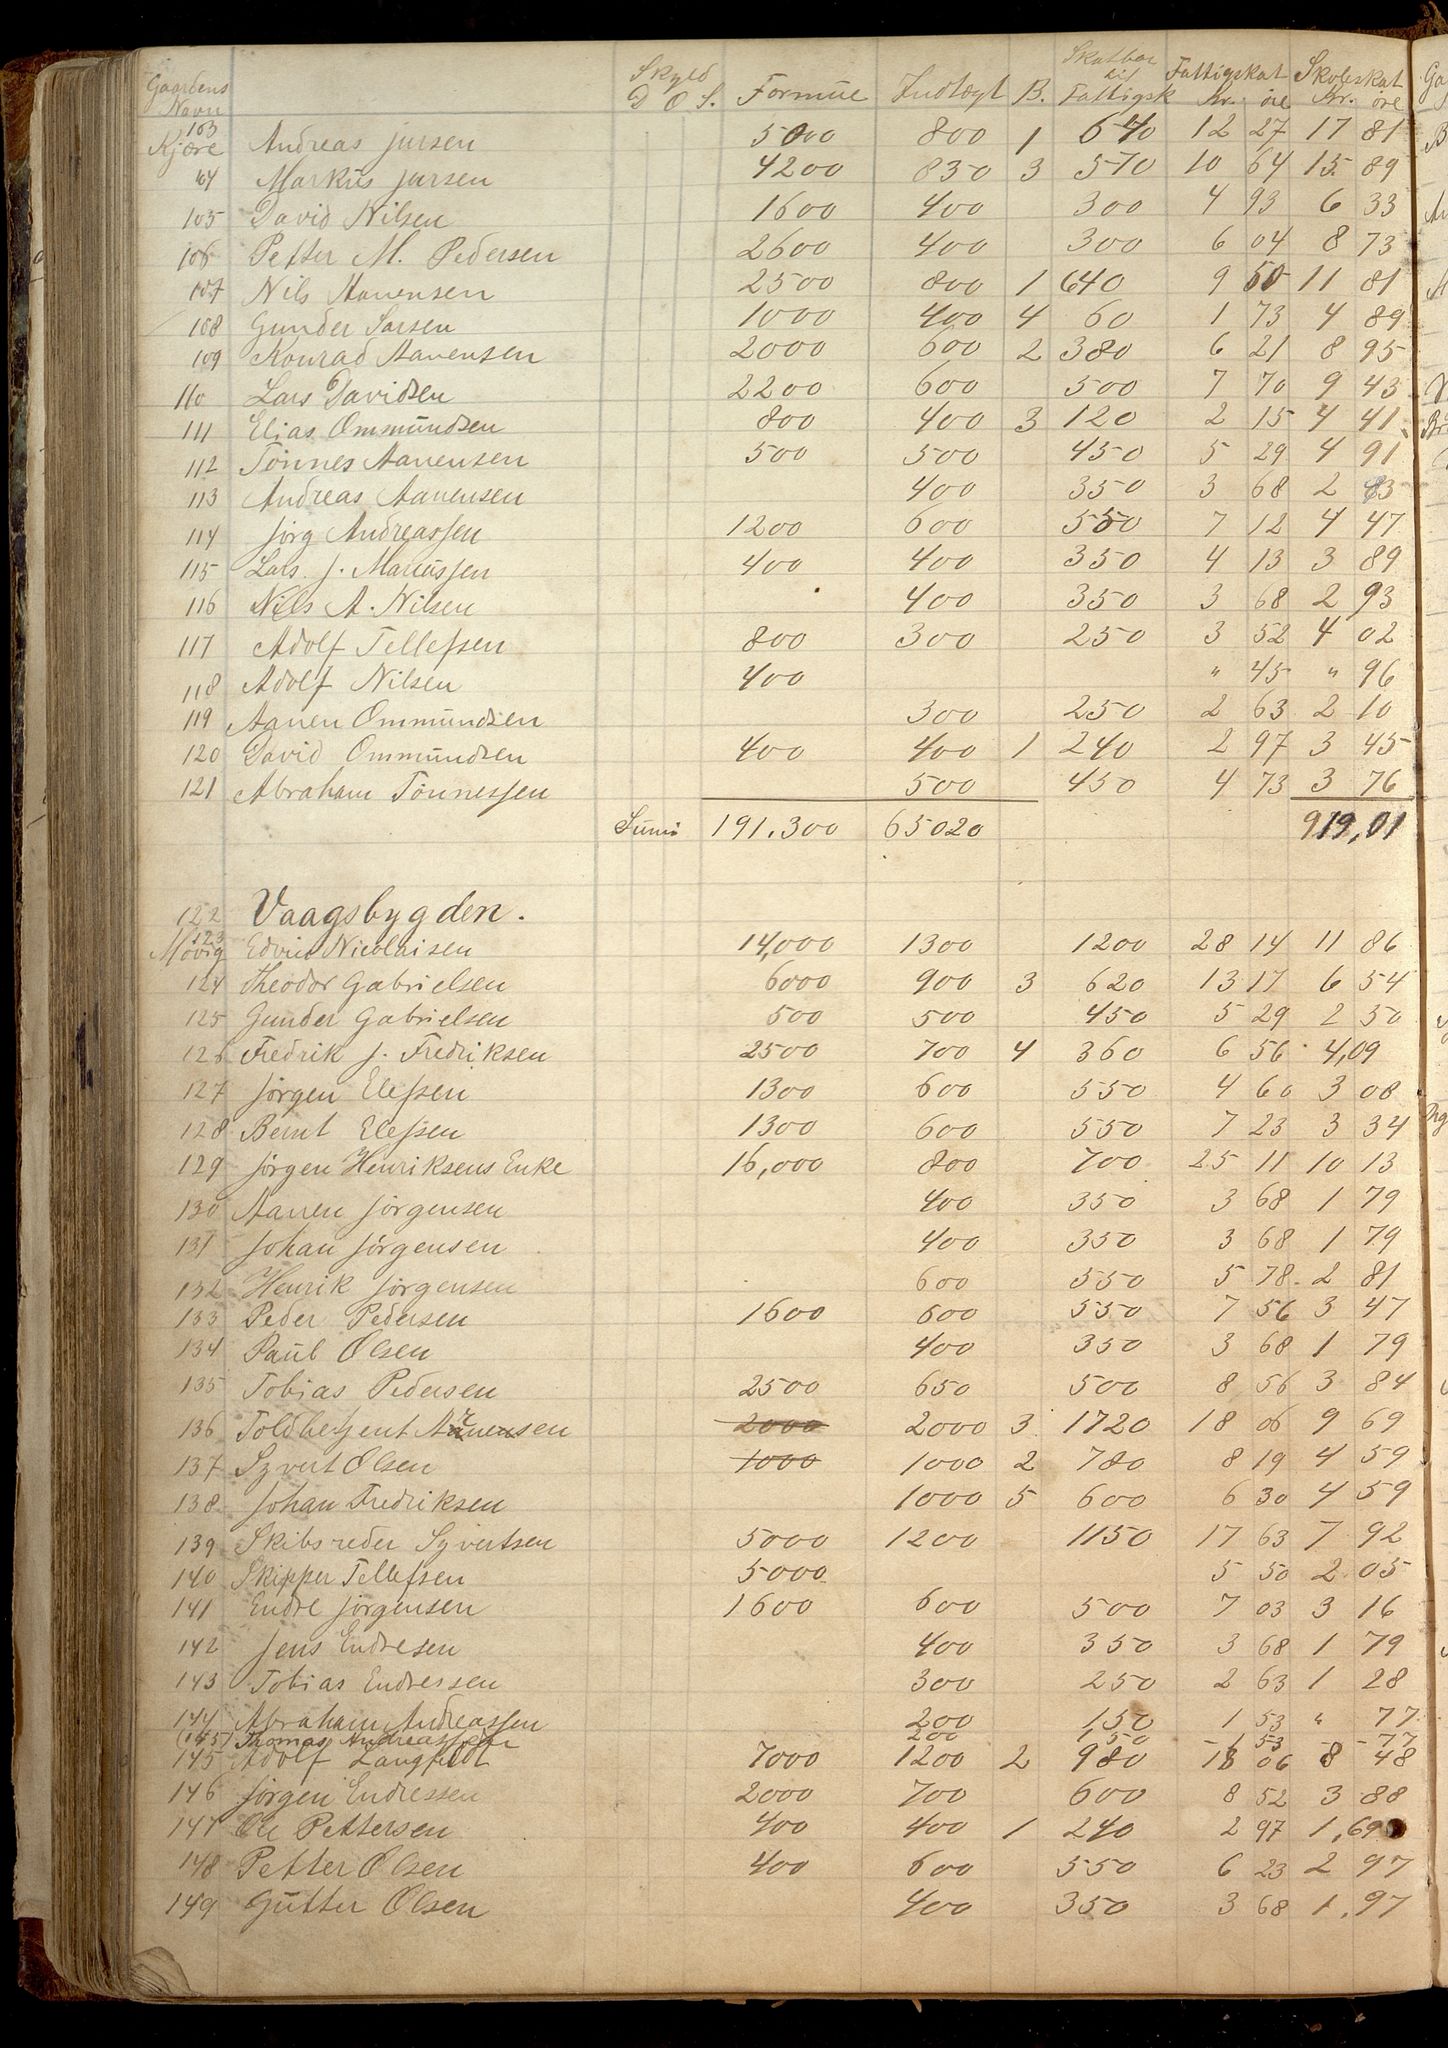 Gaardens Navn Skyld D O S. Formue Indtægt B. Skatbar til Fattigsk Fattigskat Kr. öre Skoleskat Kr. öre
103 Kjære Andreas Jursen 5000 800 1 640 12 27 17 81
104 Markus Jursen 4200 830 3 570 10 64 15 89
105 David Nilsen 1600 400 300 4 93 6 33
106 Petter M. Pedersen 2600 400 300 6 04 8 73
107 Nils Aanensen 2500 800 1 640 9 50 11 81
108 Gunder Larsen 1000 400 4 60 1 73 4 89
109 Konrad Aanensen 2000 600 2 380 6 21 8 95
110 Lars Davidsen 2200 600 500 7 70 9 43
111 Elias Ommundsen 800 400 3 120 2 15 4 41
112 Tönnes Aanensen 500 500 450 5 29 4 91
113 Andreas Aanensen 400 350 3 68 2 93
114 Jörg Andreassen 1200 600 550 7 12 4 47
115 Lars J. Mariussen 400 400 350 4 13 3 89
116 Nils A. Nilsen 400 350 3 68 2 93
117 Adolf Tellefsen 800 300 250 3 52 4 02
118 Adolf Nilsen 400 " 45 " 96
119 Aanen Ommundsen 300 250 2 63 2 10
120 David Ommundsen 400 400 1 240 2 97 3 45
121 Abraham Tönnessen 500 450 4 73 3 76
Sum 191.300 65020 919,01
122 Vaagsbygden.
123 Movig Edvin Nicolaisen 14,000 1300 1200 28 14 11 86
124 Theodor Gabrielsen 6000 900 3 620 13 17 6 54
125 Gunder Gabrielsen 500 500 450 5 29 2 50
126 Fredrik J. Fredriksen 2500 700 4 360 6 56 4,09
127 Jörgen Elefsen 1300 600 550 4 60 3 08
128 Bernt Elefsen 1300 600 550 7 23 3 34
129 Jörgen Henriksens Enke 16,000 800 700 25 11 10 13
130 Aanen Jörgensen 400 350 3 68 1 79
131 Johan Jörgensen 400 350 3 68 1 79
132 Henrik Jörgensen 600 550 5 78 2 81
133 Peder Pedersen 1600 600 550 7 56 3 47
134 Paul Olsen 400 350 3 68 1 79
135 Tobias Pedersen 2500 650 500 8 56 3 84
136 Toldbetjent 2000 2000 3 1720 18 06 9 69
137 Syvert Olsen 1000 1000 2 780 8 19 4 59
138 Johan Fredriksen 1000 5 600 6 30 4 59
139 Skibsreder Syvertsen 5000 1200 1150 17 63 7 92
140 Skipper Tellefsen 5000 5 50 2 05
141 Endre Jörgensen 1600 600 500 7 03 3 16
142 Jens Endresen 400 350 3 68 1 79
143 Tobias Endressen 300 250 2 63 1 28
144 Abraham Andreassen 200 150 1 53 " 77
(145) Thomas Andreassen 200 150 - 1 53 - - 77
145 Adolf Langfeldt 7000 1200 2 980 18 06 8 48
146 Jörgen Endressen 2000 700 600 8 52 3 88
147 Ole Pettersen 400 400 1 240 2 97 1,69
148 Petter Olsen 400 600 550 6 23 2 97
149 Gutter Olsen 400 350 3 68 1,97